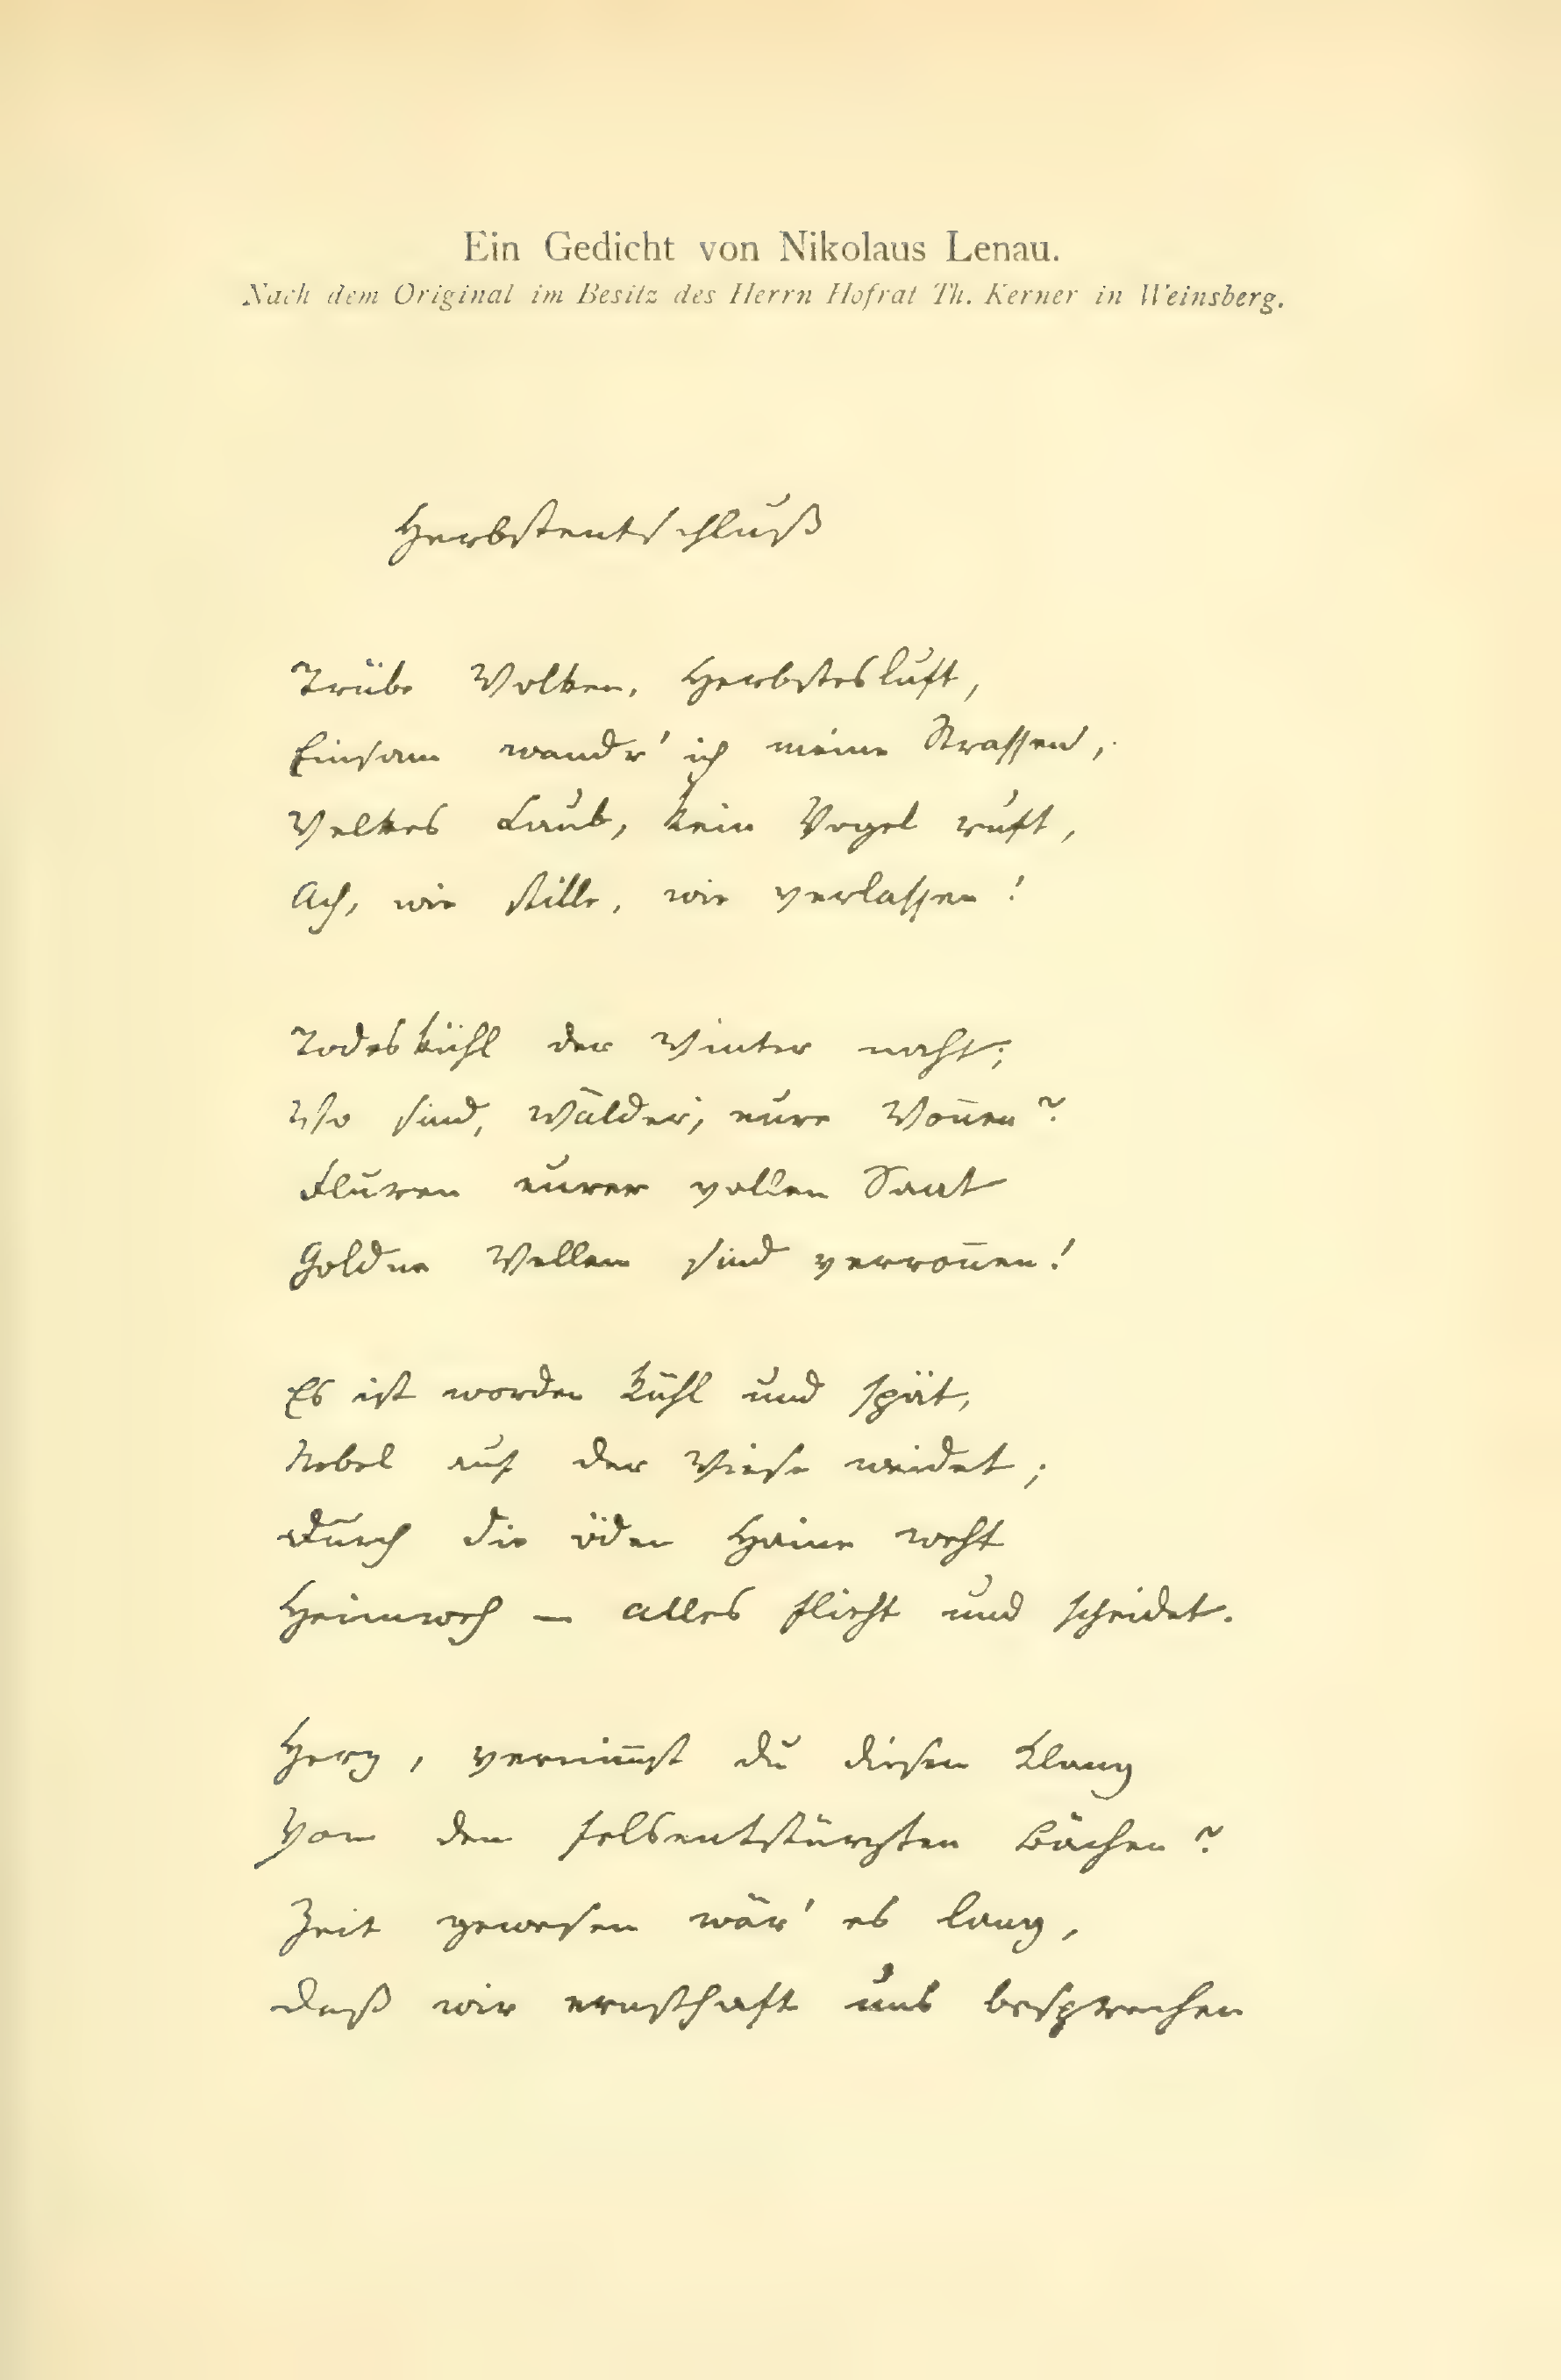 Ein Gedicht von Nikolaus Lenau.
Nach dem Original im Besitz des Herrn Hofrat Th. Kerner in Weinsberg.
Herbstentschluß
Trübe Wolken, Herbstesluft,
Einsam wandr' ich meine Strassen,
Welkes Laub, kein Vogel ruft,
Ach, wie stille, wie verlassen!
Todeskühl der Winter naht;
Wo sind, Wälder, eure Woñen?
Fluren eurer vollen Saat
Goldne Wellen sind verroñen!
Es ist worden kühl und spät,
Nebel auf der Wiese weidet;
Durch die öden Haine weht
Heimweh – alles flieht und scheidet.
Herz, vernim̅st du diesen Klang
Von den felsentstürzten Bächen?
Zeit gewesen wär' es lang,
daß wir ernsthaft uns besprechen